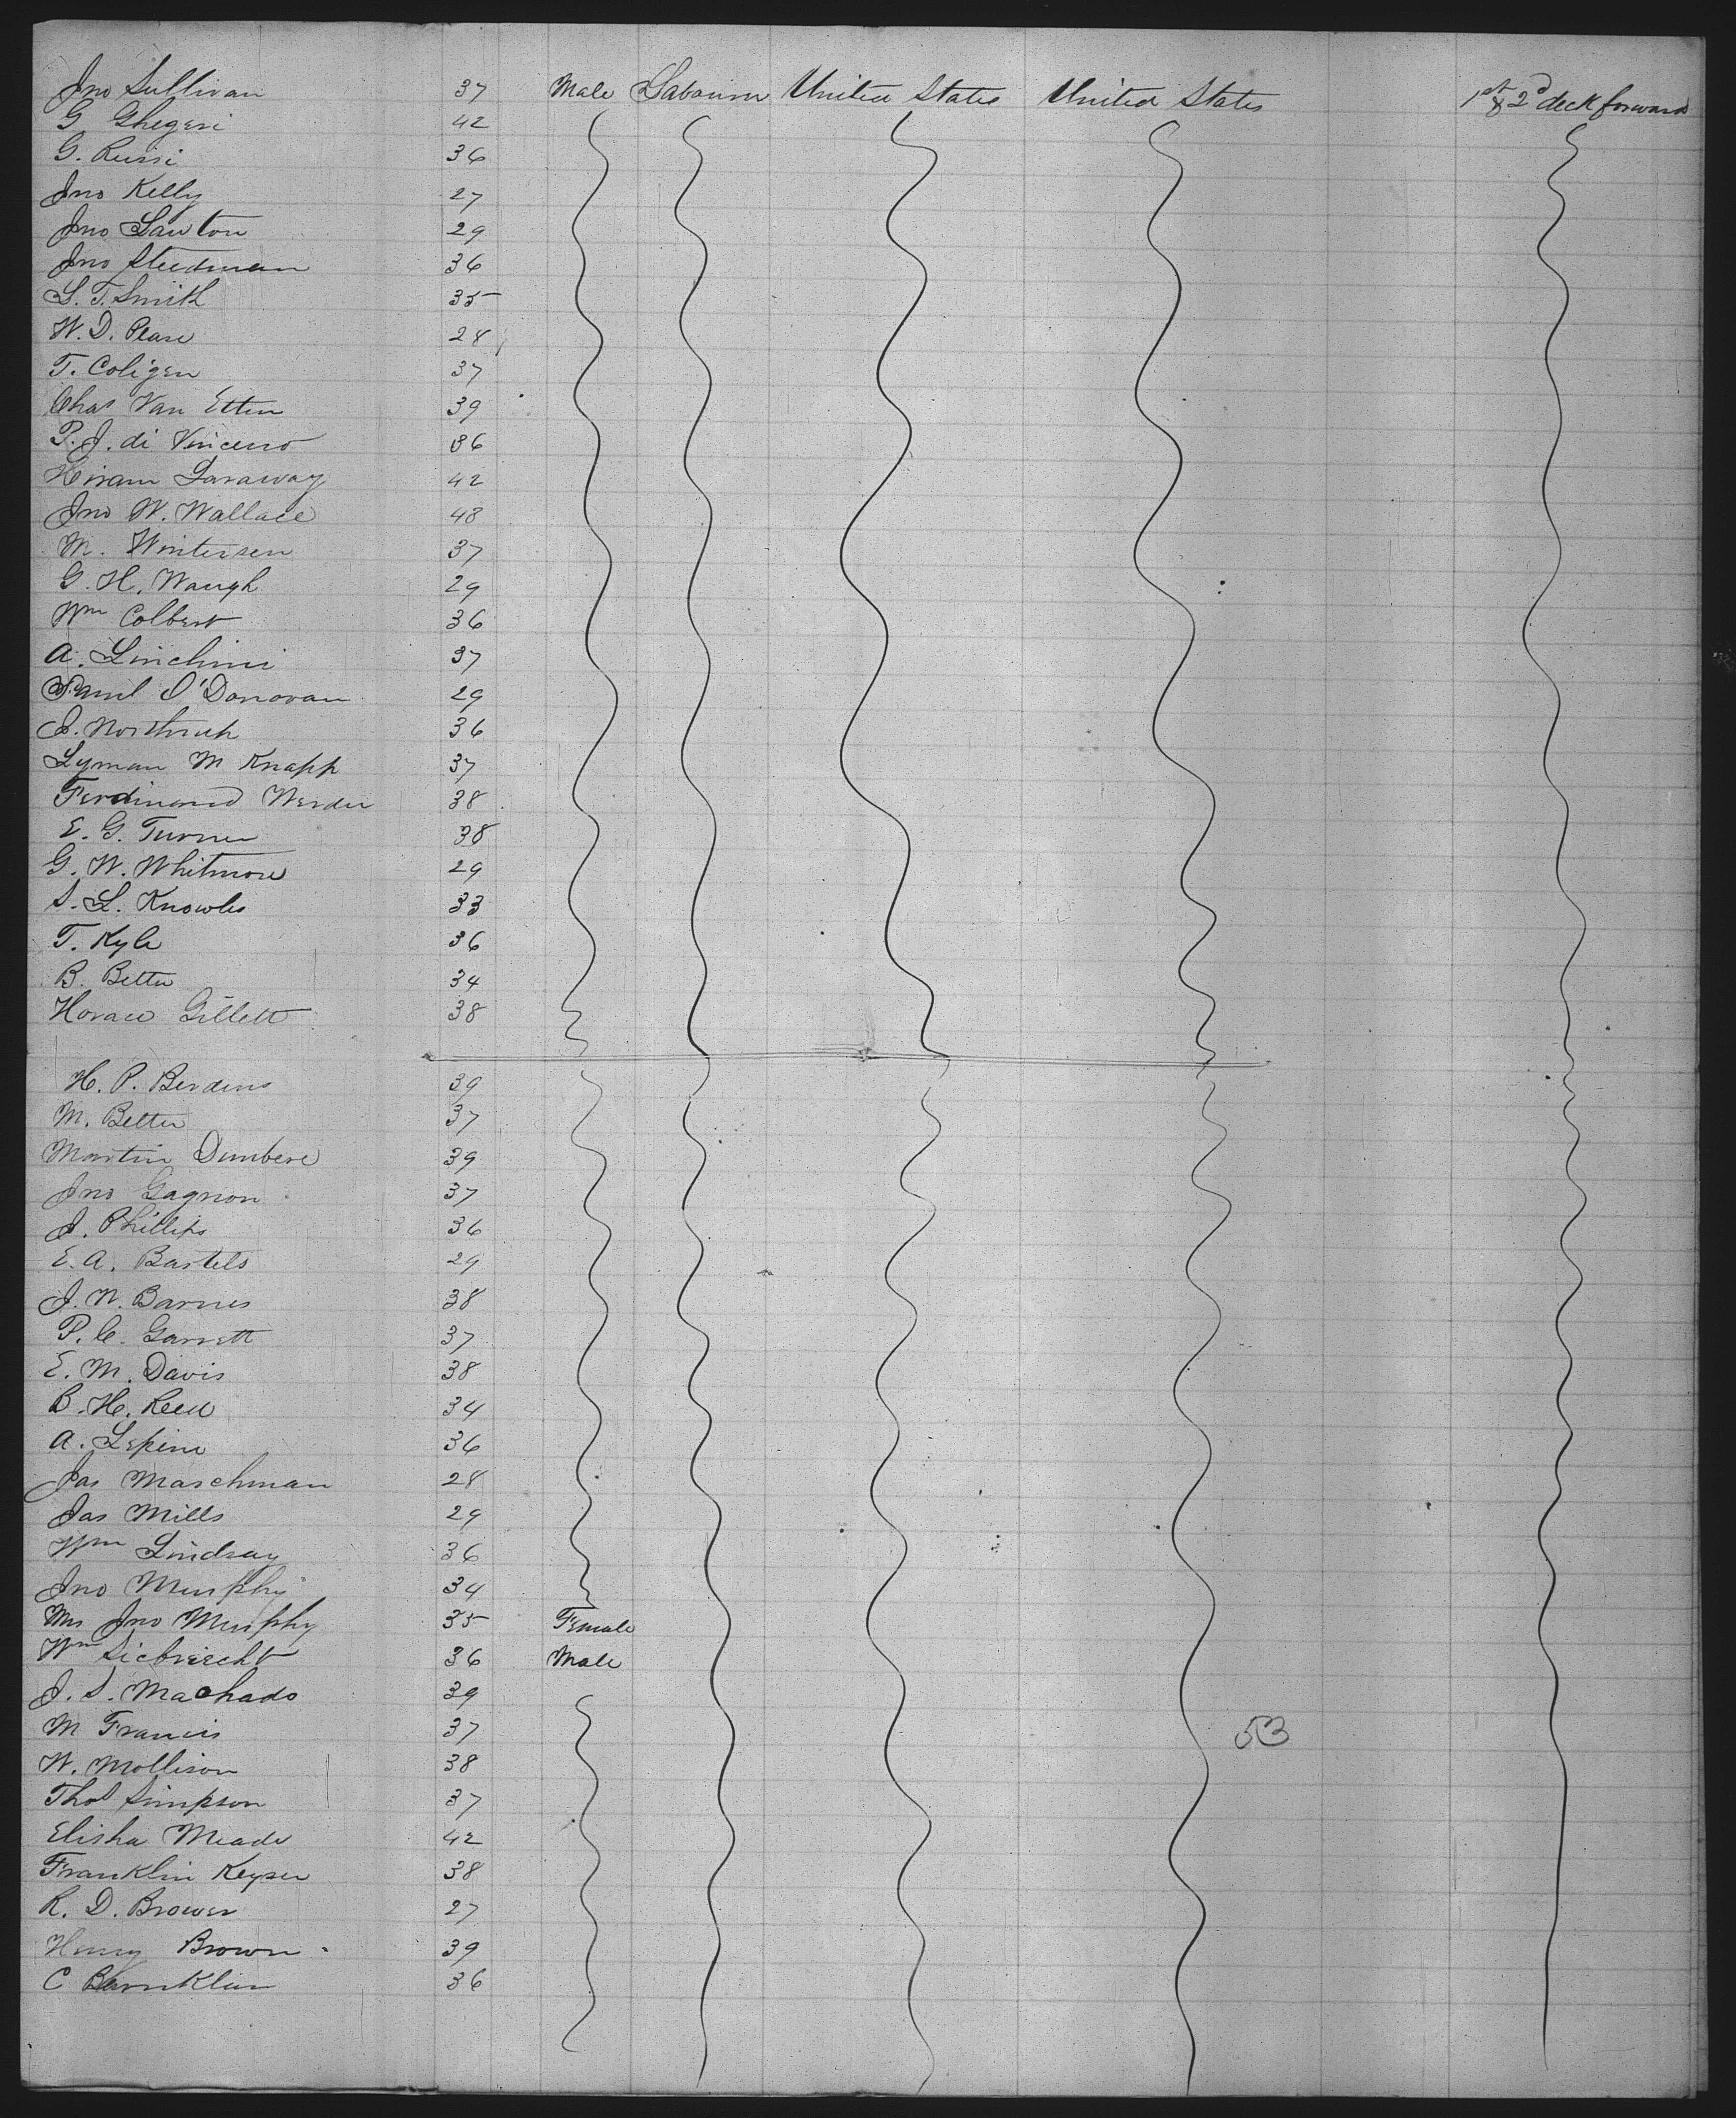 Jno Sullivan 37 Male Labourer United States United States 1st & 2d deck forward
G Ghegeri 42
G. Russi 36
Jno Kelly 27
Jno Lawton 29
Jno Steedman 36
L. T. Smith 35
W. D. Pease 28
T. Coligen 37
Chas Van Etten 39
P. J. di Vincenzo 36
Hiram Laraway 42
Jno W. Wallace 48
M. Wintersen 37
G. H. Waugh 29
Wm Colbert 36
A. Linchini 37
Saml O'Donovan 29
J. Northrup 36
Lyman M Knapp 37
Ferdinand Werder 38
E. G. Turner 38
G. W. Whitmore 29
S. L. Knowles 33
T. Kyle 36
B. Better 34
Horace Gillett 38
H. P. Berdens 39
M. Better 37
Martin Dumbere 39
Jno Gagnon 37
J. Phillips 36
E. A. Bartels 29
J. W. Barnes 38
P. C. Garrett 37
E. M. Davis 38
B. H. Reed 34
A. Lepine 36
Jas Marchman 28
Jas Mills 29
Wm Lindsay 36
Jno Murphy 34
Mrs Jno Murphy 35 Female
Wm Siebrecht 36 Male
J. S. Machado 39
M Francis 37 53
W. Mollison 38
Thos Simpson 37
Elisha Meade 42
Franklin Keyser 38
R. D. Brower 27
Henry Brown 39
C 36